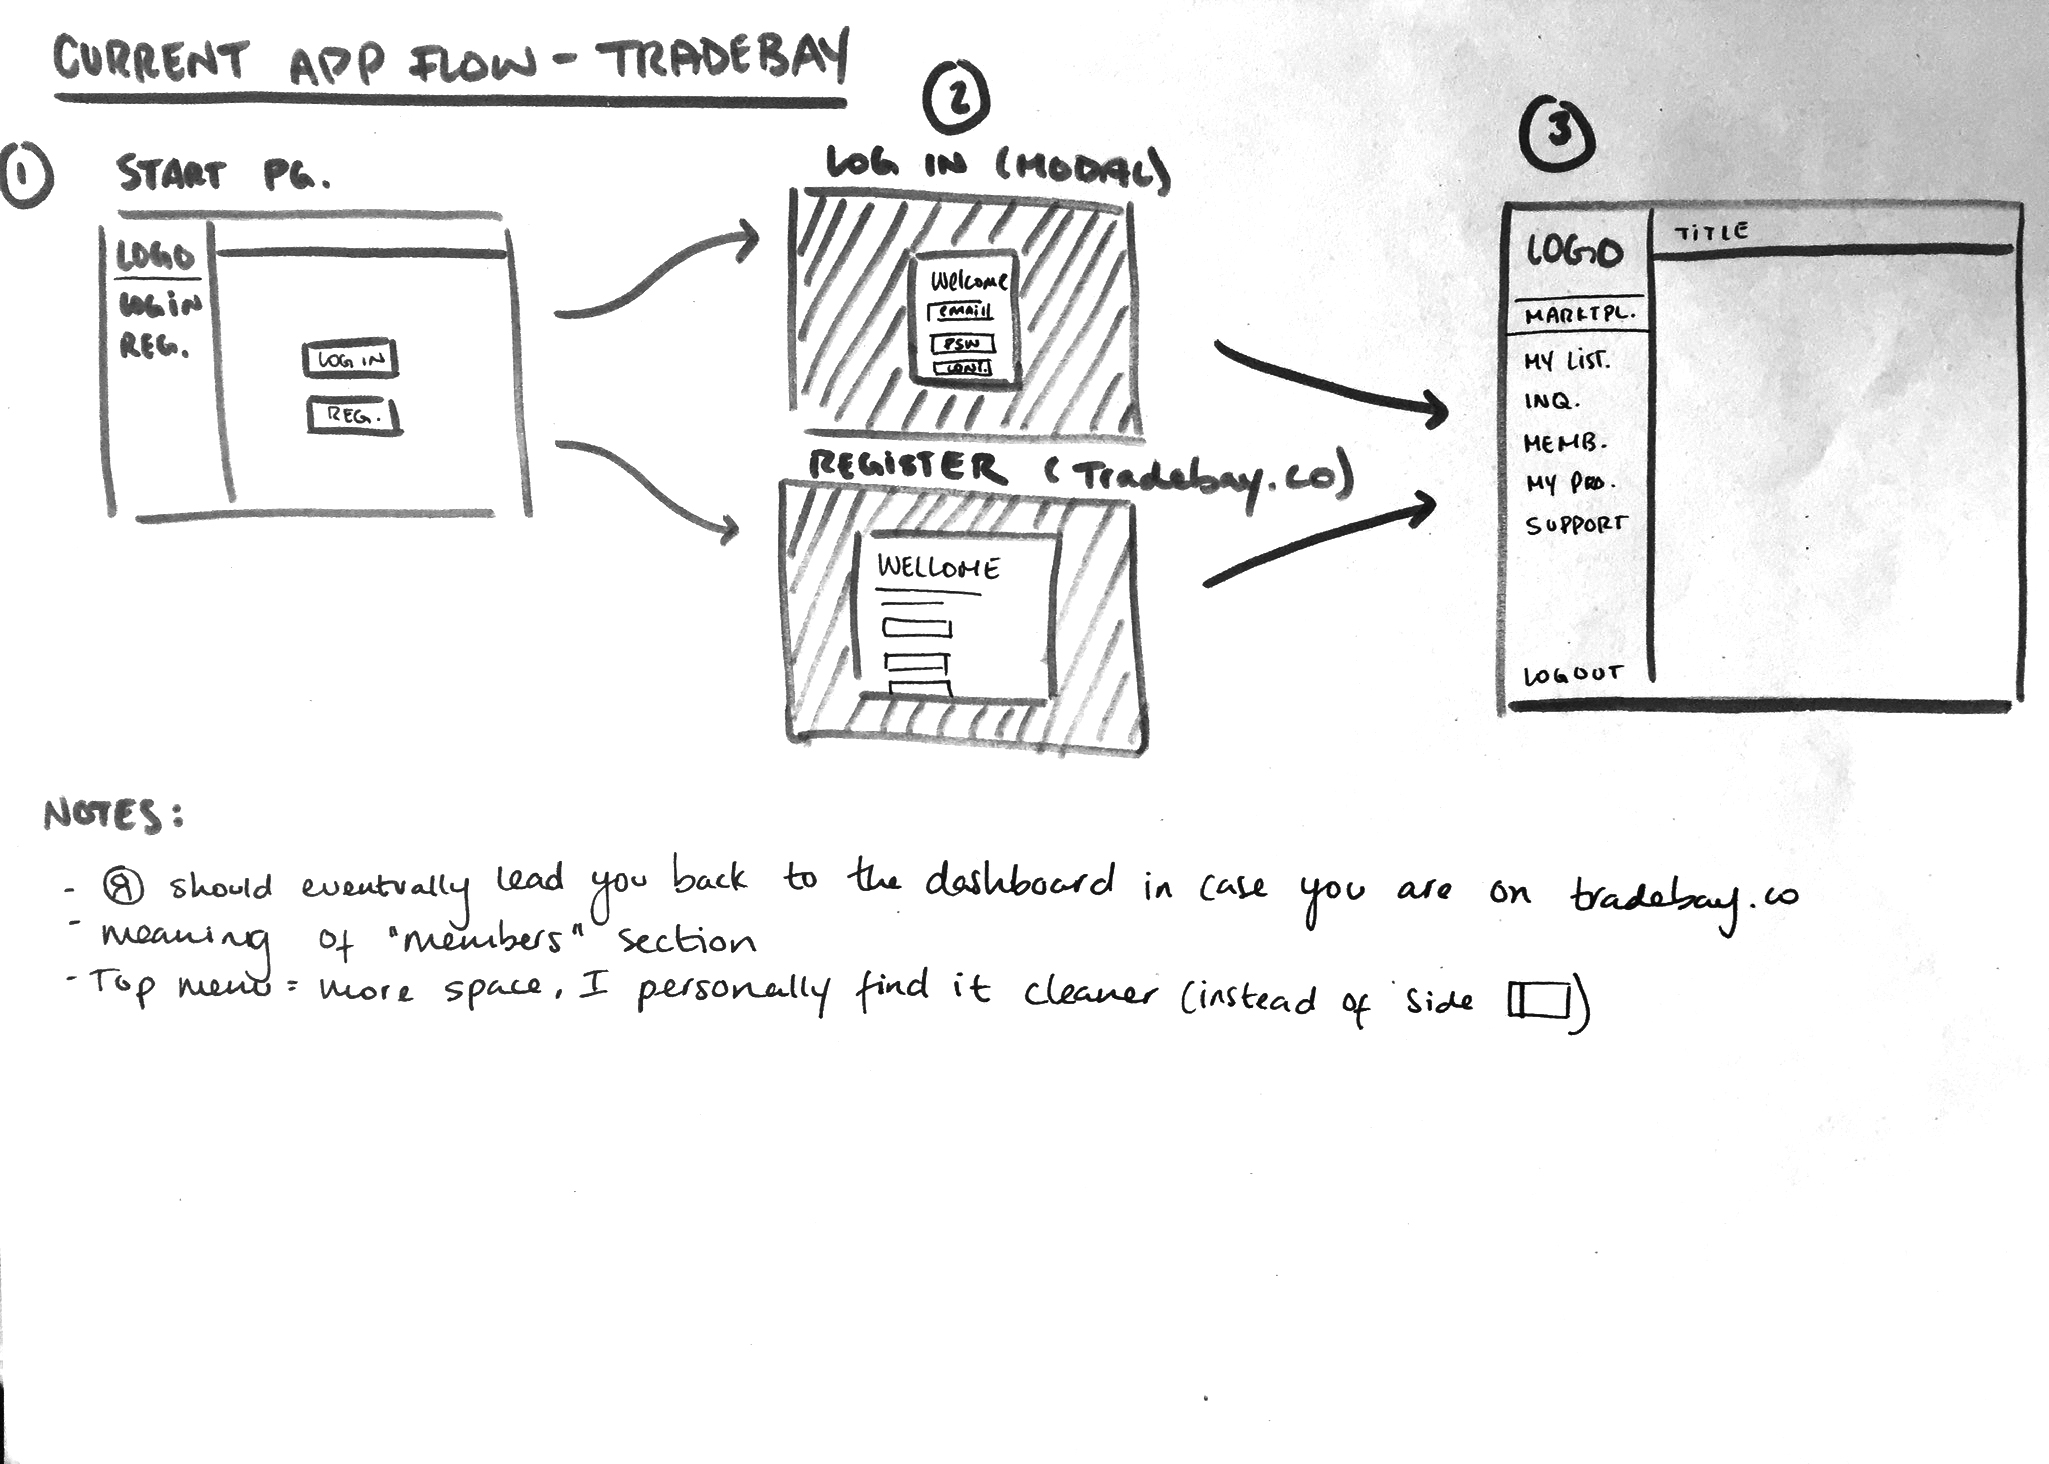 CURRENT APP FLOW - TRADEBAY
1 START PG.
LOGO
LOGIN
REG.
LOG IN
REG.
2
LOG IN (MODAL)
Welcome
EMAIL
PSW
CONT.
REGISTER (Tradebay.co)
WELLOME
3
LOGO
TITLE
MARKTPL.
MY LIST.
INQ.
MEMB.
MY PRO.
SUPPORT
LOGOUT
NOTES:
- R should eventually lead you back to the dashboard in case you are on tradebay.co
- meaning of "members" section
- Top menu = more space, I personally find it cleaner (instead of side )